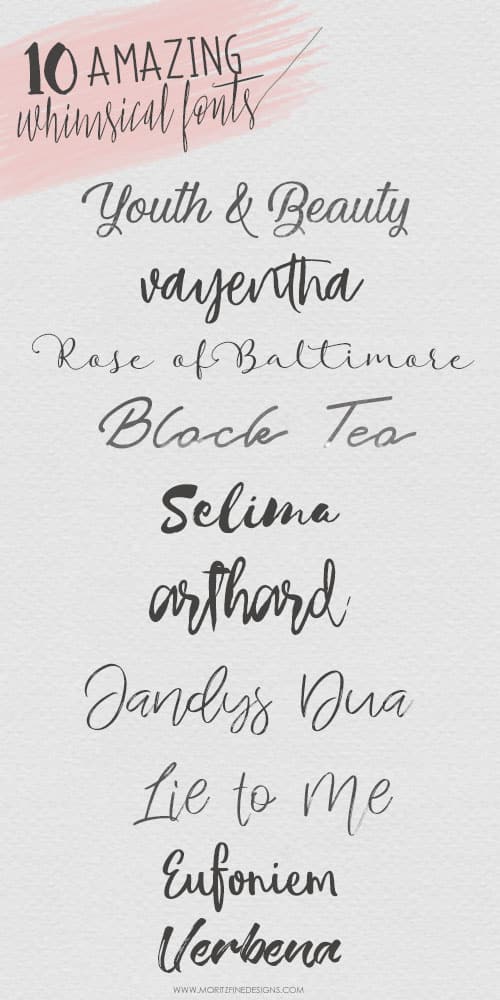 10 AMAZING
whimsical fonts
Youth & Beauty
vayentha
Rose of Baltimore
Black Tea
Selima
arthard
Jandys Dua
Lie to Me
Eufoniem
Verbena
WWW.MORITZFINEDESIGNS.COM